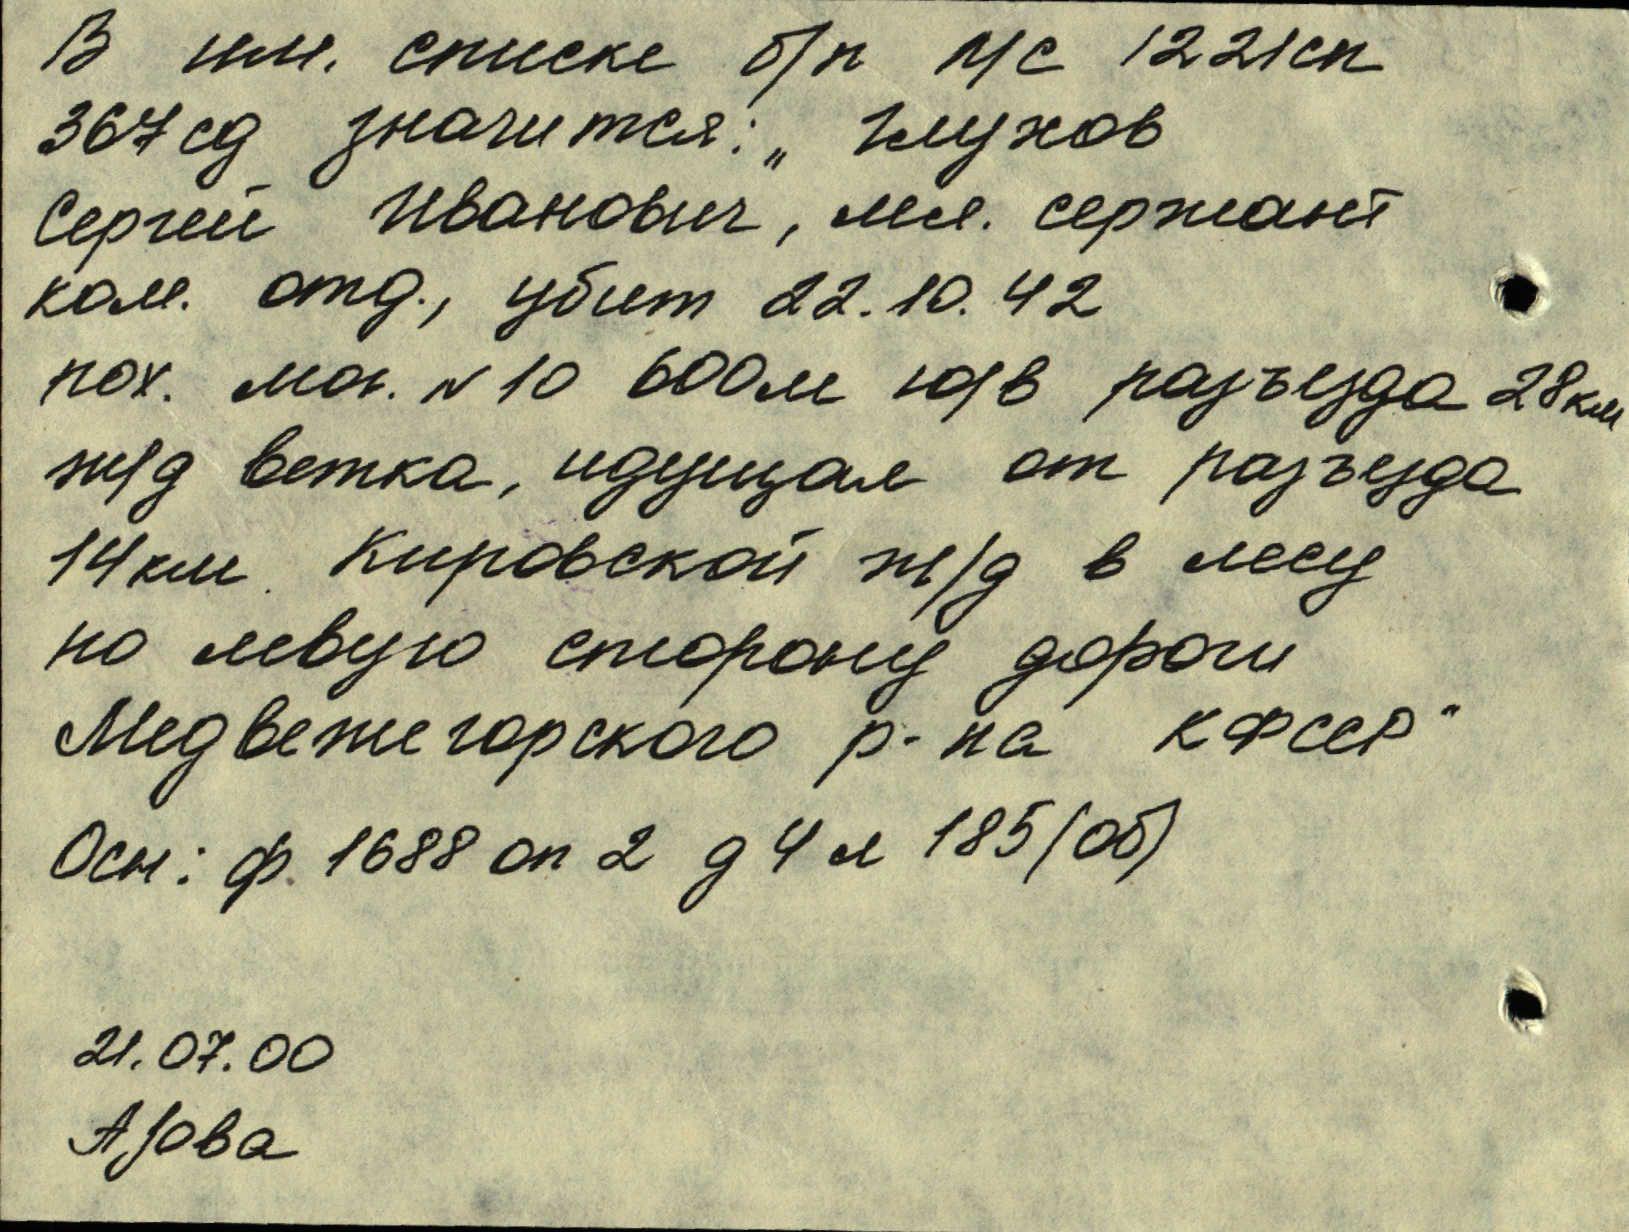 В им. списке б/п л/с 1221сп
367сд значится: „Глухов
Сергей Иванович, мл. сержант
ком. отд., убит 22.10.42
пох. мог. N10 600м ю/в разъезда 28км
ж/д ветка, идущая от разъезда
14км Кировской ж/д в лесу
по левую сторону дороги
Медвежегорского р-на КФССР"
Осн: ф. 1688 оп 2 д 4 л 185(об)
21.07.00
Азова